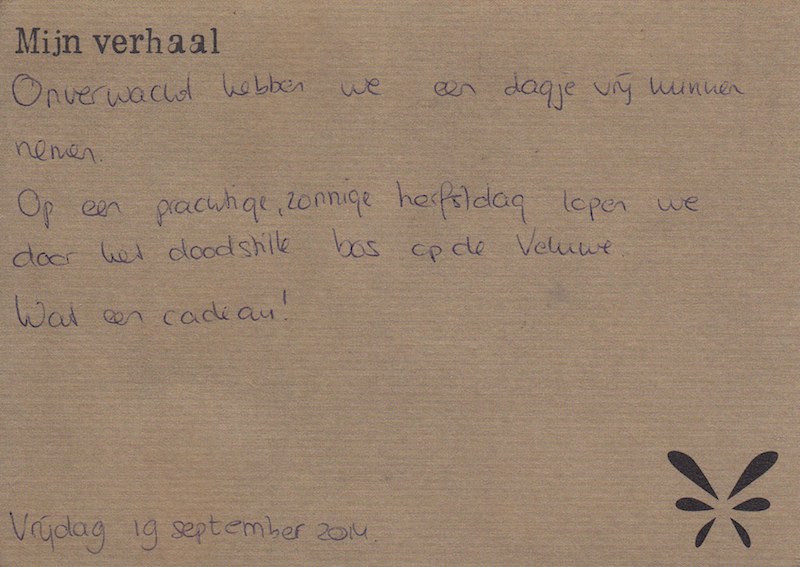 Mijn verhaal
Onverwacht hebben we een dagje vrij kunnen
nemen.
Op een prachtige, zonnige herfstdag lopen we
door het doodstille bos op de Veluwe.
Wat een cadeau!
Vrijdag 19 september 2014.